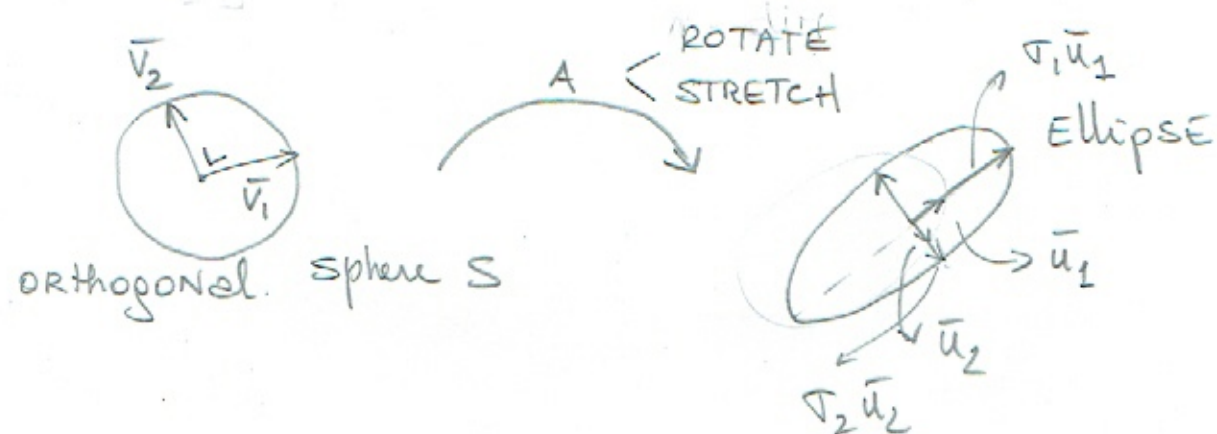 V̄₂
V̄₁
ORthogoNal. Sphere S
A
ROTATE
STRETCH
σ₁ū₁
EllipSE
ū₁
ū₂
σ₂ū₂